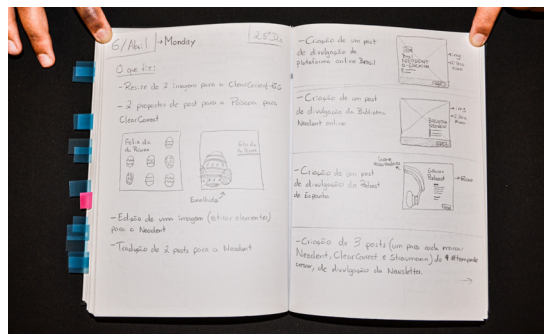 6/Abril → Monday
O que fiz:
- Resize de 2 imagens para a ClearCorrect-
- 2 propostas de post para a Páscoa para
ClearCorrect
Feliz dia
da Páscoa
Feliz dia
da Páscoa
Escolhida
- Edição de uma imagem (retirar elementos)
para a Neodent
- Tradução de 2 posts para a Neodent
- Criação de um post
de divulgação da
plataforma online Brasil
- Criação de um post
de divulgação da Biblioteca
Neodent online
- Criação de um post
de divulgação do Podcast
de Espanha
Podcast
- Criação de 3 posts (um para cada marca:
Neodent, ClearCorrect e Straumann) do
de divulgação da Newsletter.